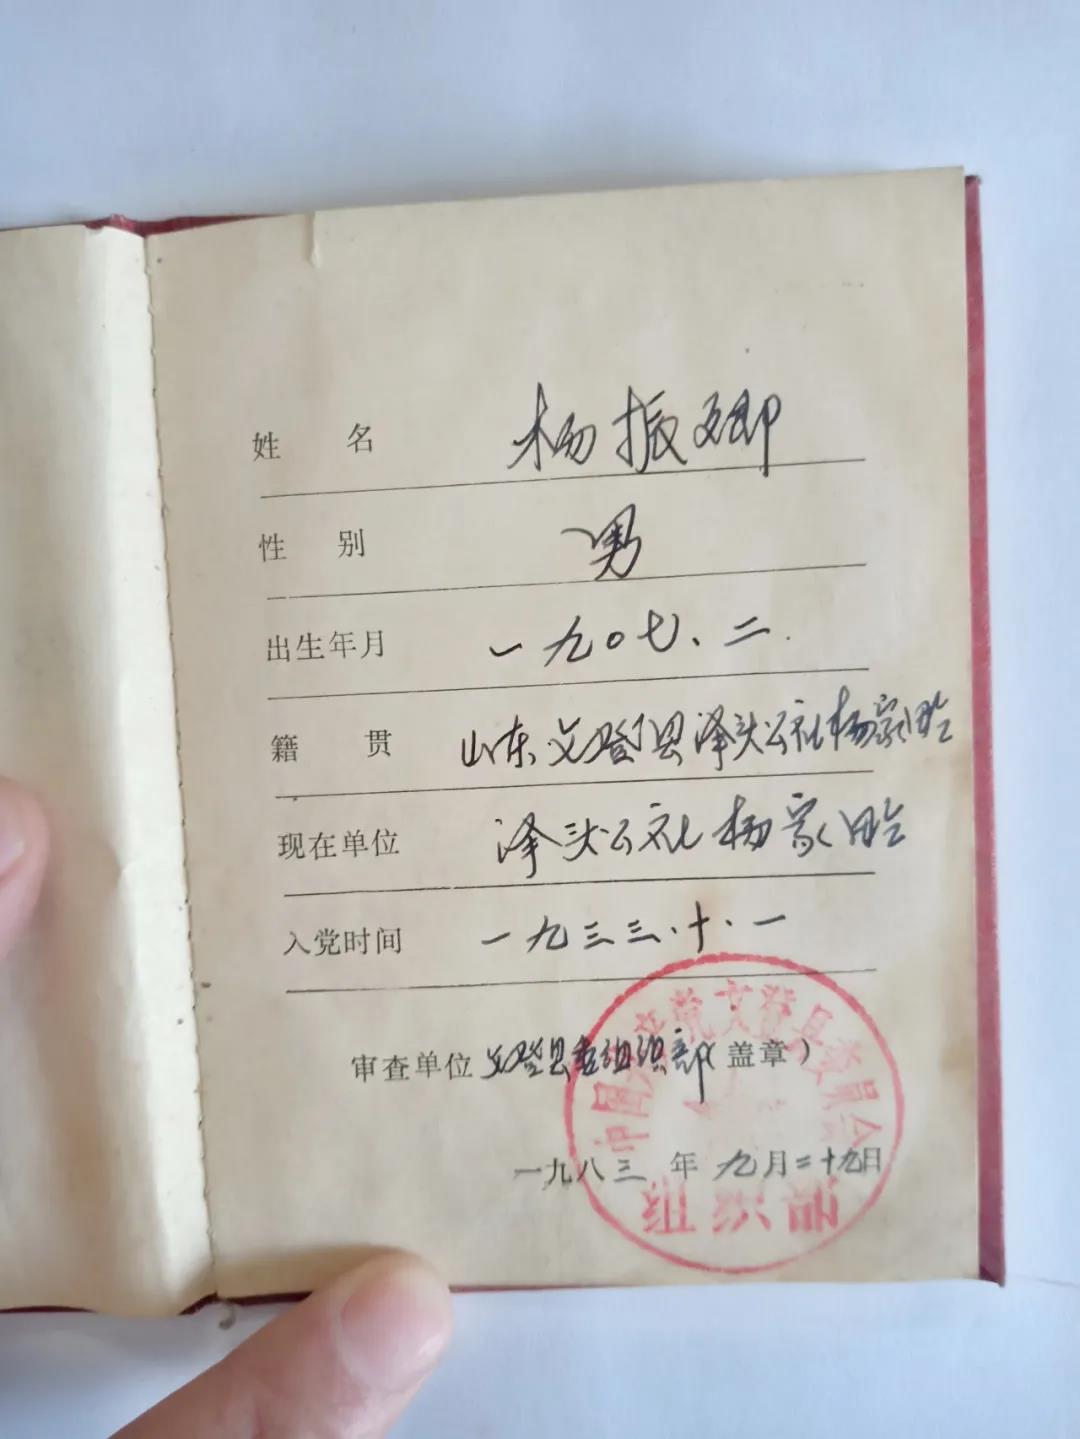 姓名 杨振卿
性别 男
出生年月 一九〇七、二.
籍贯 山东文登县泽头公社杨家
现在单位 泽头公社杨家
入党时间 一九三三.十.一
审查单位 文登县委组织部(盖章)
一九八三年九月二十九日
中国共产党文登县委员会
组织部